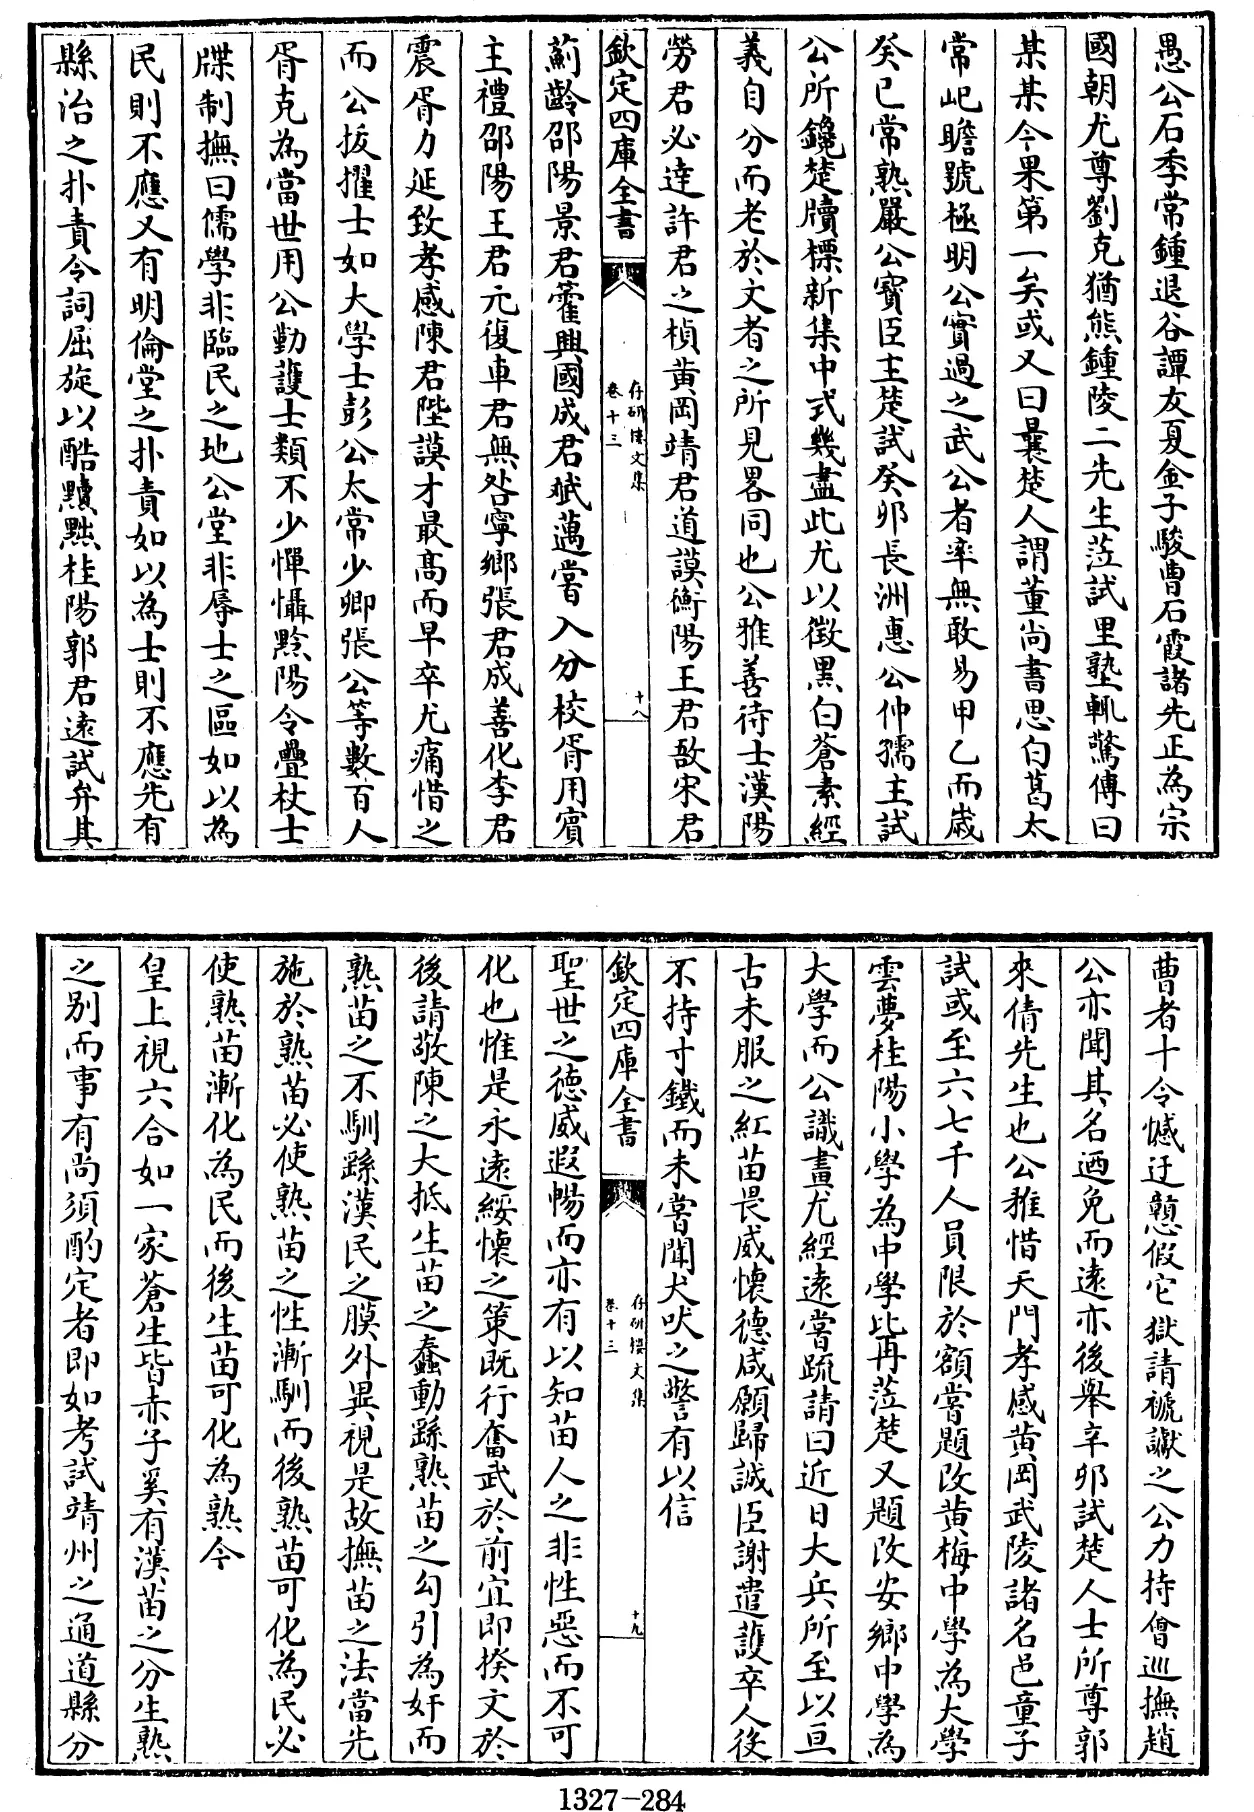 愚公石季常鍾退谷譚友夏金子駿曹石霞諸先正為宗
國朝尤尊劉克猶熊鍾陵二先生蒞試里塾輒驚傳曰
某某今果第一矣或又曰曩楚人謂董尚書思白葛太
常屺瞻號極明公實過之武公者率無敢易甲乙而歲
癸巳常熟嚴公寶臣主楚試癸卯長洲惠公仲孺主試
公所鑱楚牘標新集中式幾盡此尤以徵黑白蒼素經
義自分而老於文者之所見畧同也公雅善待士漢陽
勞君必達許君之楨黃岡靖君道謨衡陽王君敔宋君
欽定四庫全書
存研樓文集
卷十三
十八
薊齡邵陽景君藿興國成君斌邁嘗入分校胥用賓
主禮邵陽王君元復車君無咎寧鄉張君成善化李君
震胥力延致孝感陳君陛謨才最高而早卒尤痛惜之
而公拔擢士如大學士彭公太常少卿張公等數百人
胥克為當世用公勤護士類不少憚懾黔陽令疊杖士
牒制撫曰儒學非臨民之地公堂非辱士之區如以為
民則不應又有明倫堂之扑責如以為士則不應先有
縣治之扑責令詞屈旋以酷黷黜桂陽郭君遠試弁其
曹者十令憾迂戇假它獄請褫讞之公力持會巡撫趙
公亦聞其名迺免而遠亦後舉辛卯試楚人士所尊郭
來倩先生也公雅惜天門孝感黃岡武陵諸名邑童子
試或至六七千人員限於額嘗題改黃梅中學為大學
雲夢桂陽小學為中學比再蒞楚又題改安鄉中學為
大學而公識畫尤經遠嘗疏請曰近日大兵所至以亘
古未服之紅苗畏威懷德咸願歸誠臣謝遣護卒人後
不持寸鐵而未嘗聞犬吠之警有以信
欽定四庫全書
存研樓文集
卷十三
十九
聖世之德威遐暢而亦有以知苗人之非性惡而不可
化也惟是永遠綏懷之策既行奮武於前宜即揆文於
後請敬陳之大抵生苗之蠢動繇熟苗之勾引為奸而
熟苗之不馴繇漢民之膜外異視是故撫苗之法當先
施於熟苗必使熟苗之性漸馴而後熟苗可化為民必
使熟苗漸化為民而後生苗可化為熟今
皇上視六合如一家蒼生皆赤子奚有漢苗之分生熟
之别而事有尚須酌定者即如考試靖州之通道縣分
1327-284